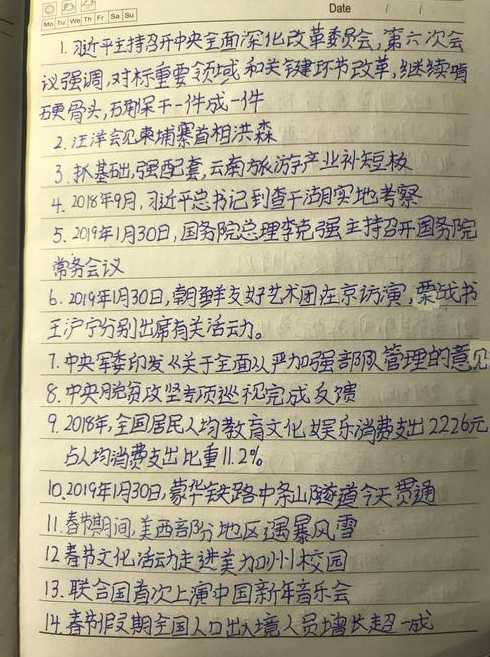 Date / /
Mo Tu We Th Fr Sa Su
1. 习近平主持召开中央全面深化改革委员会,第六次会
议强调,对标重要领域和关键环节改革,继续啃
硬骨头,确保干一件成一件
2. 汪洋会见柬埔寨首相洪森
3. 抓基础,强配套,云南旅游产业补短板
4. 2018年9月,习近平总书记到查干湖实地考察
5. 2019年1月30日,国务院总理李克强主持召开国务院
常务会议
6. 2019年1月30日,朝鲜友好艺术团在京访演,栗战书
王沪宁分别出席有关活动。
7. 中央军委印发《关于全面从严加强部队管理的意见
8. 中央脱贫攻坚专项巡视完成反馈
9. 2018年,全国居民人均教育文化娱乐消费支出2226元
占人均消费支出比重11.2%
10. 2019年1月30日,蒙华铁路中条山隧道今天贯通
11. 春节期间,美西部分地区遇暴风雪
12 春节文化活动走进美加州校园
13. 联合国首次上演中国新年音乐会
14. 春节假期全国人口出入境人员增长超一成